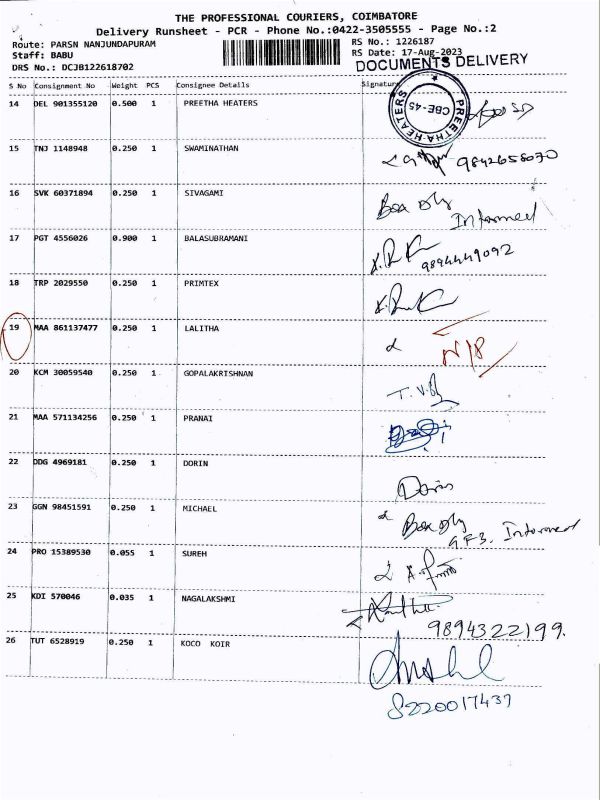 THE PROFESSIONAL COURIERS, COIMBATORE
Delivery Runsheet - PCR - Phone No.:0422-3505555 - Page No.:2
Route: PARSN NANJUNDAPURAM RS No.: 1226187
Staff: BABU RS Date: 17-Aug-2023
DRS No.: DCJB122618702 DOCUMENTS DELIVERY
S No Consignment No Weight PCS Consignee Details Signature
14 DEL 901355120 0.500 1 PREETHA HEATERS
PREETHA-HEATERS
CBE-45
15 TNJ 1148948 0.250 1 SWAMINATHAN
9842658070
16 SVK 60371894 0.250 1 SIVAGAMI
Box Dly
Informed
17 PGT 4556026 0.900 1 BALASUBRAMANI
9894449092
18 TRP 2029550 0.250 1 PRIMTEX
19 MAA 861137477 0.250 1 LALITHA
20 KCM 30059540 0.250 1 GOPALAKRISHNAN
21 MAA 571134256 0.250 1 PRANAI
22 DDG 4969181 0.250 1 DORIN
Dorin
23 GGN 98451591 0.250 1 MICHAEL
Box Dly
GF3. Informed
24 PRO 15389530 0.055 1 SUREH
25 KDI 570046 0.035 1 NAGALAKSHMI
9894322199.
26 TUT 6528919 0.250 1 KOCO KOIR
8220017437